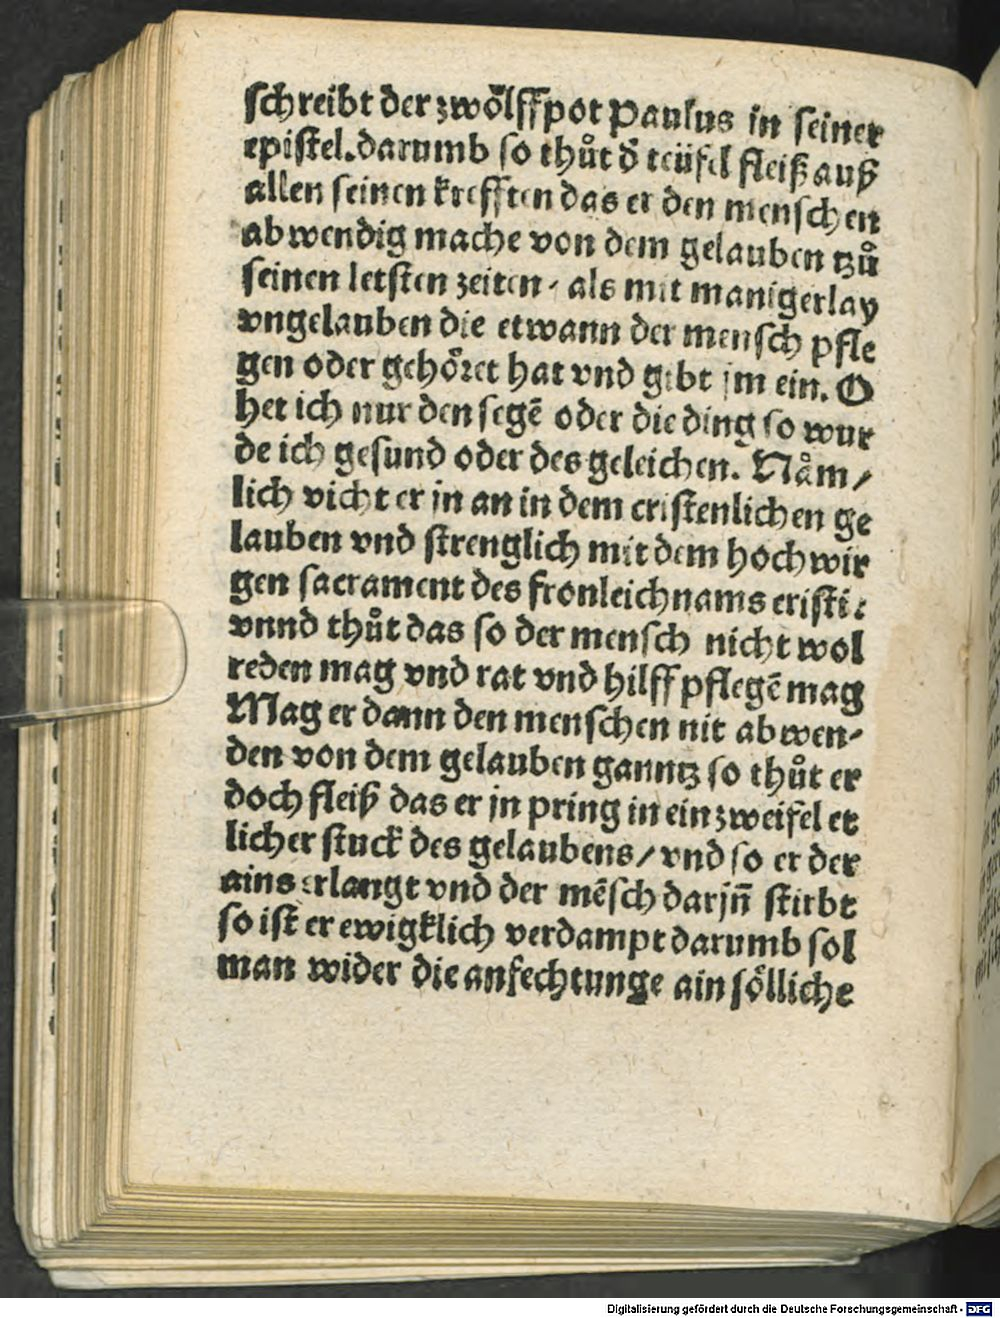 schreibt der zwoͤlffpot Paulus in seiner
epistel. darumb so thuͦt d̕ teüfel fleiß auß
allen seinen krefften das er den menschen
abwendig mache von dem gelauben tzuͦ
seinen letsten zeiten / als mit manigerlay
vngelauben die etwann der mensch pfle
gen oder gehoͤret hat vnd gibt jm ein. O
het ich nur den segē oder die ding so wur
de ich gesund oder des geleichen. Naͤm /
lich vicht er jn an in dem cristenlichen ge
lauben vnd strenglich mit dem hochwir
gen sacrament des fronleichnams cristi:
vnnd thuͦt das so der mensch nicht wol
reden mag vnd rat vnd hilff pflegē mag
Mag er dann den menschen nit abwen-
den von dem gelauben ganntz so thuͦt er
doch fleiß das er jn pring in ein zweifel et
licher stuck des gelaubens / vnd so er der
ains erlangt vnd der mēsch darjn̄ stirbt
so ist er ewigklich verdampt darumb sol
man wider die anfechtunge ain soͤlliche
Digitalisierung gefördert durch die Deutsche Forschungsgemeinschaft - DFG